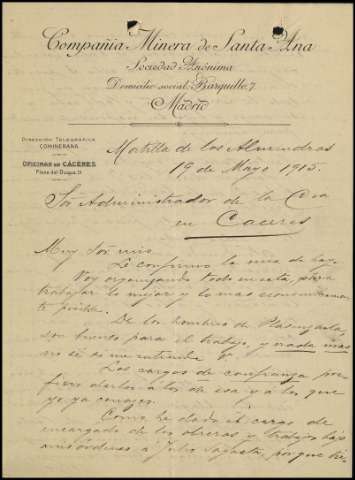 Compañia Minera de Santa Ana
Sociedad Anónima
Domicilio social: Barquillo, 7
Madrid
DIRECCIÓN TELEGRÁFICA
COMINERANA
OFICINAS EN CÁCERES
Plaza del Duque, 11
Mortilla de los Almendros
19 de Mayo 1915.
Sor Administrador de la Cia
en Cáceres
Muy Sor mio
Le confirmo la mia de hoy.
Voy organizando todo en esta, para
trabajar lo mejor y lo mas economicamen
te posible.
De los hombres de Plasenzuela,
son buenos para el trabajo, y nada mas
no sé si me entiende V.
Los cargos de confianza pre
fiero darlos á los de esa y á los que
yo ya conozco.
Como he dado el cargo de
encargado de los obreros y trabajos bajo
mis órdenes a Julio Sagasta, porque hi-